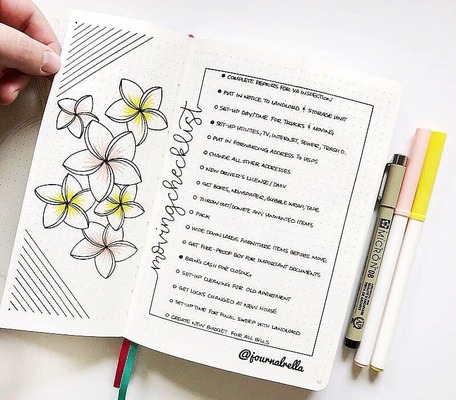 moving checklist
COMPLETE REPAIRS FOR VA INSPECTION
PUT IN NOTICE TO LANDLORD & STORAGE UNIT
SET-UP DAY/TIME FOR TRUCKS & MOVING
SET-UP UTILITIES, TV, INTERNET, SEWER, TRASH
PUT IN FORWARDING ADDRESS TO USPS
CHANGE ALL OTHER ADDRESSES
NEW DRIVER'S LICENSE / DMV
GET BOXES, NEWSPAPER, BUBBLE WRAP, TAPE
THROW OUT/DONATE ANY UNWANTED ITEMS
PACK
WIPE DOWN LARGE FURNITURE ITEMS BEFORE MOVE
GET FIRE-PROOF BOX FOR IMPORTANT DOCUMENTS
BRING CASH FOR CLOSING
SET-UP CLEANING FOR OLD APARTMENT
GET LOCKS CHANGED AT NEW HOUSE
SET-UP TIME FOR FINAL SWEEP WITH LANDLORD
CREATE NEW BUDGET FOR ALL BILLS
@journalrella
MICRON 08